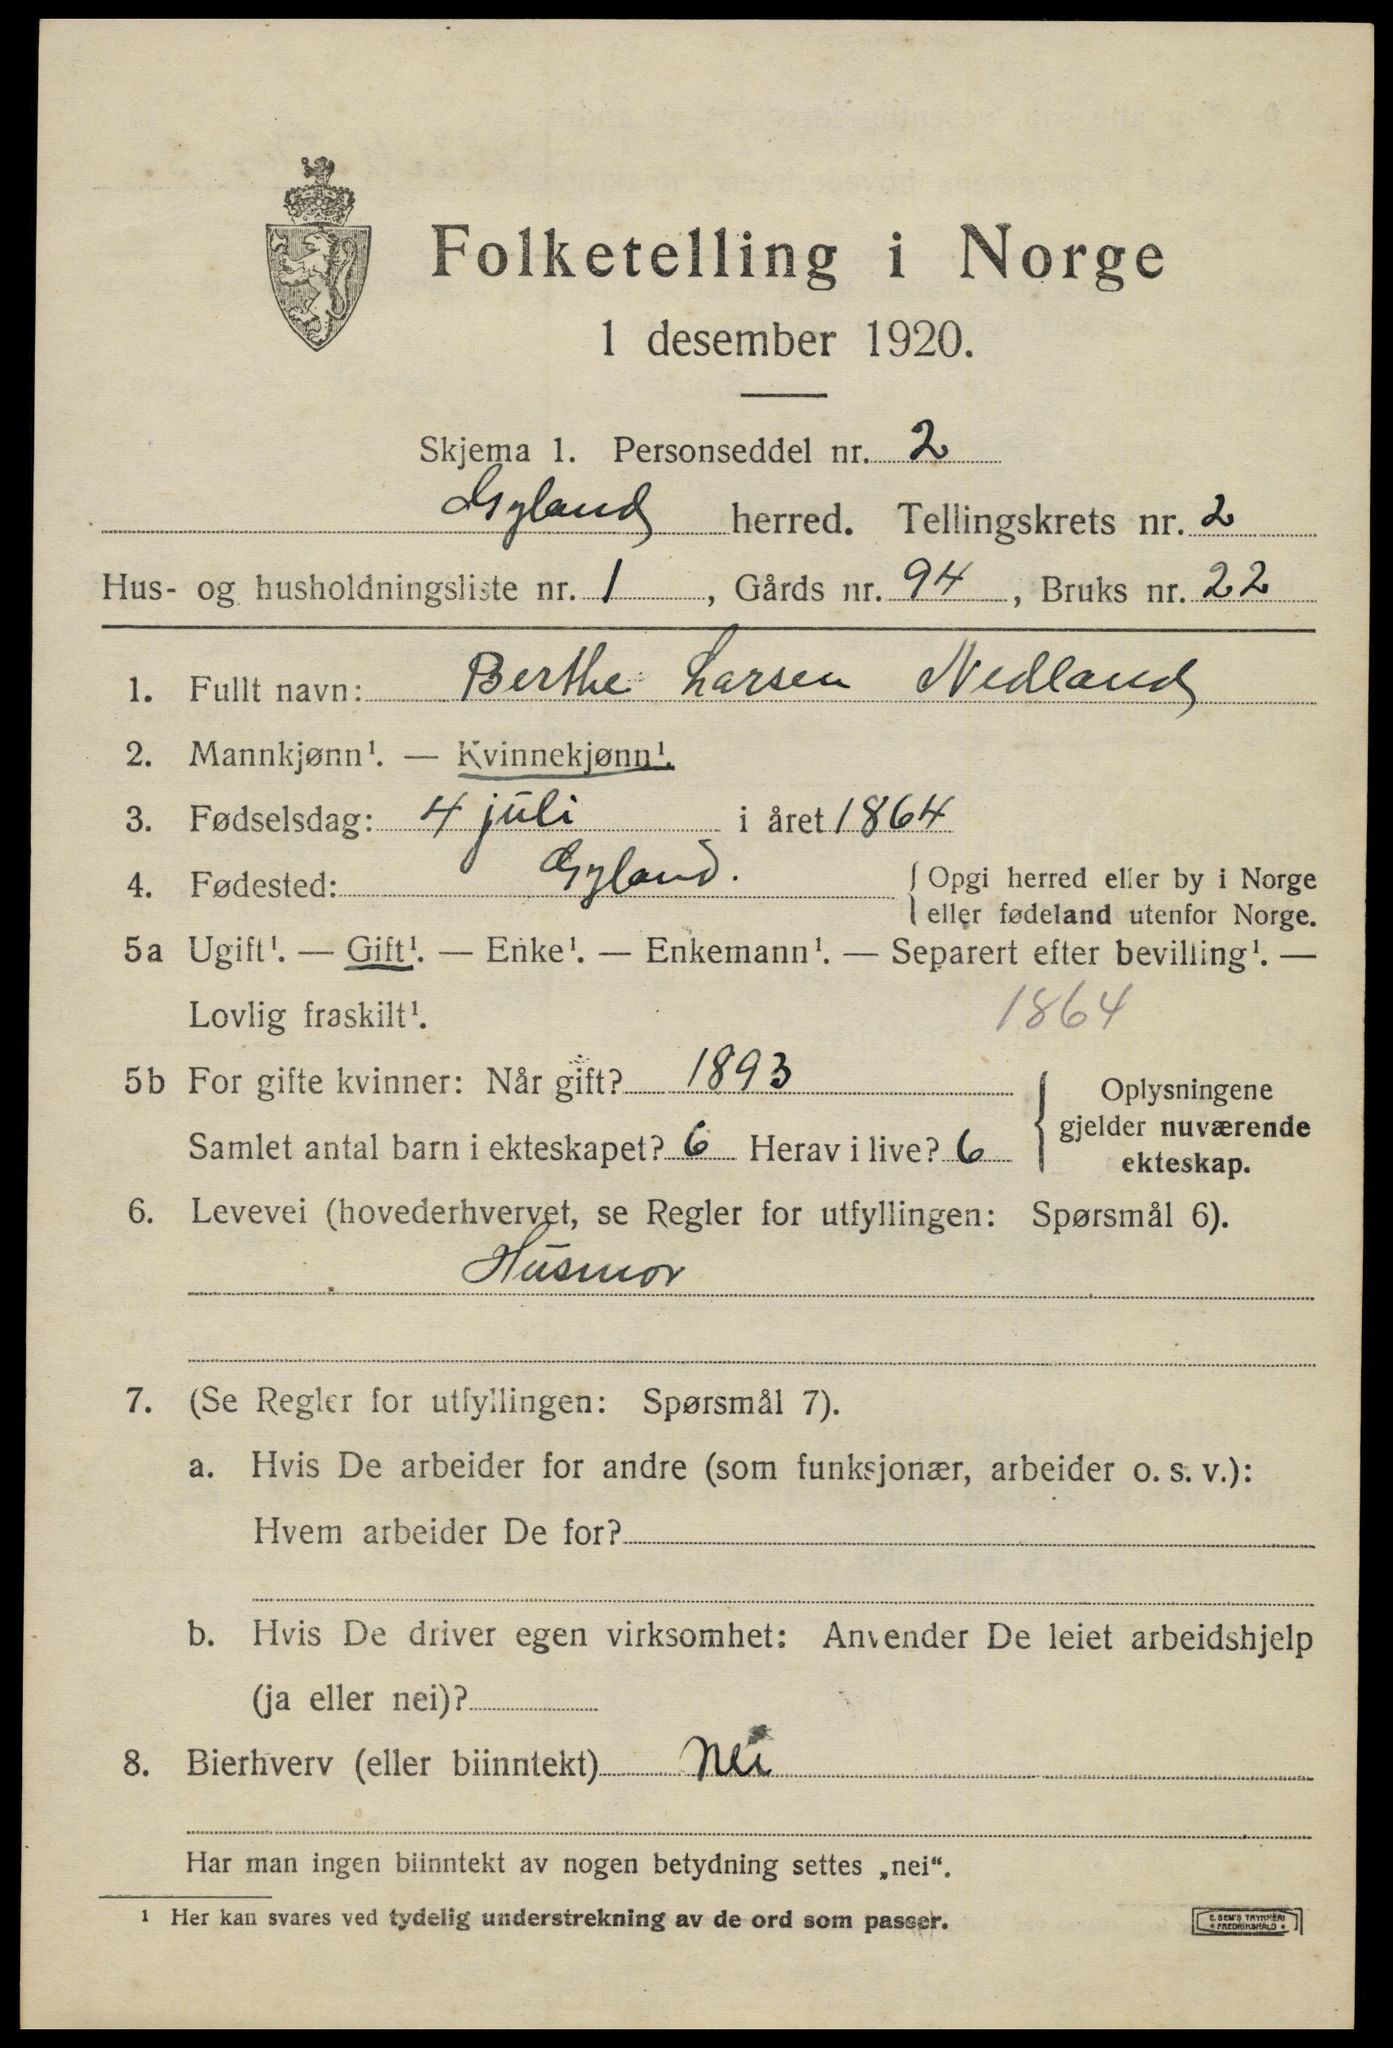 Folketelling i Norge
1 desember 1920.
Skjema 1. Personseddel nr. 2
Gyland herred. Tellingskrets nr. 2
Hus- og husholdningsliste nr. 1, Gårds nr. 94, Bruks nr. 22
1. Fullt navn: Berthe Larsen Nedland
2. Mannkjønn¹. — Kvinnekjønn¹.
3. Fødselsdag: 4 juli i året 1864
4. Fødested: Gyland. { Opgi herred eller by i Norge
eller fødeland utenfor Norge.
5a Ugift¹. — Gift¹. — Enke¹. — Enkemann¹. — Separert efter bevilling¹. —
Lovlig fraskilt¹. 1864
5b For gifte kvinner: Når gift? 1893
Samlet antal barn i ekteskapet? 6 Herav i live? 6
{ Oplysningene
gjelder nuværende
ekteskap.
6. Levevei (hovederhvervet, se Regler for utfyllingen: Spørsmål 6).
Husmor
7. (Se Regler for utfyllingen: Spørsmål 7).
a. Hvis De arbeider for andre (som funksjonær, arbeider o. s. v.):
Hvem arbeider De for?
b. Hvis De driver egen virksomhet: Anvender De leiet arbeidshjelp
(ja eller nei)?
8. Bierhverv (eller biinntekt) Nei
Har man ingen biinntekt av nogen betydning settes „nei“.
¹ Her kan svares ved tydelig understrekning av de ord som passer.
E. SEM'S TRYKKERI
FREDRIKSHALD